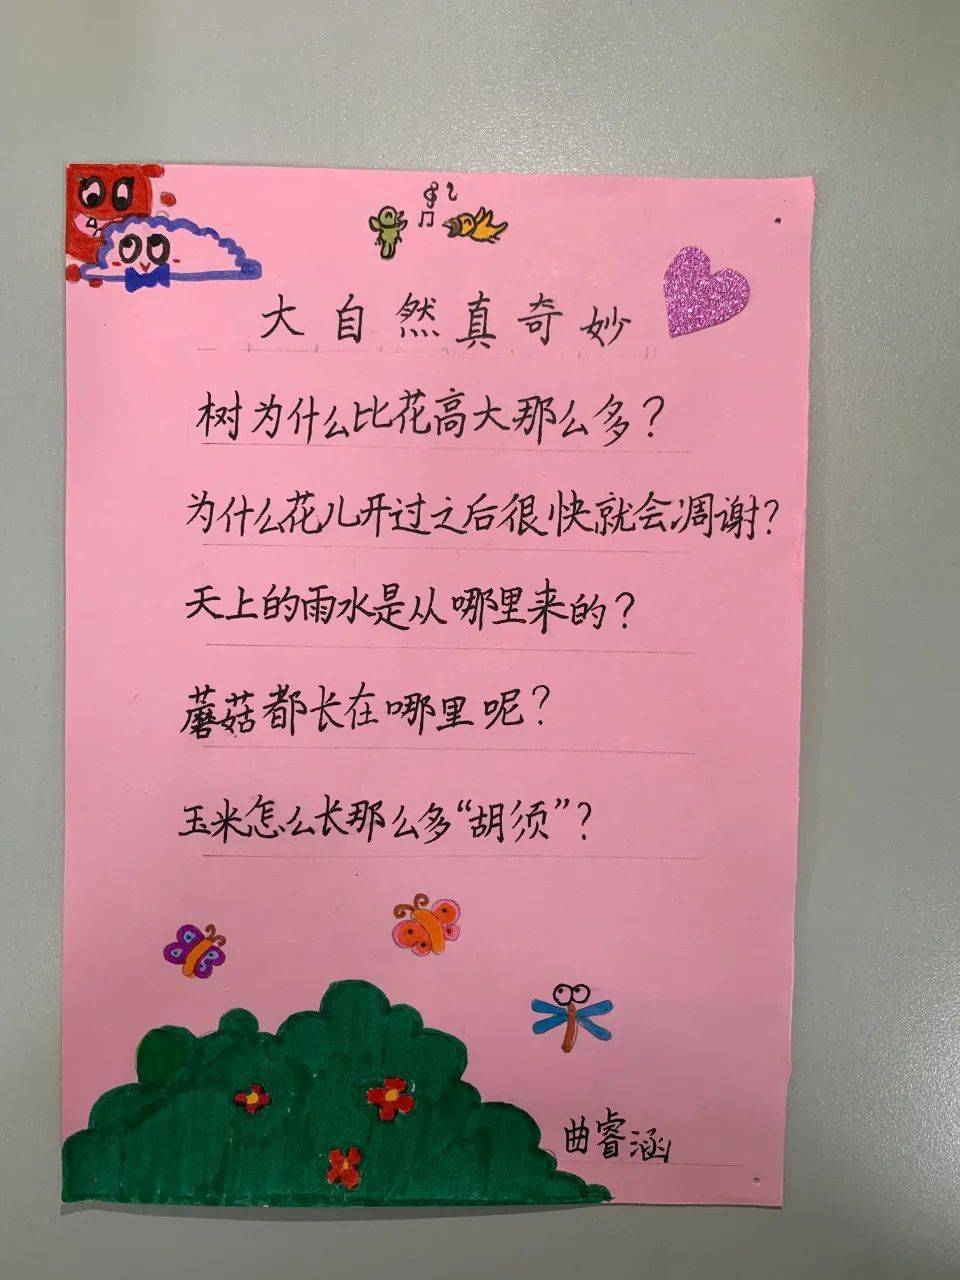 大自然真奇妙
树为什么比花高大那么多？
为什么花儿开过之后很快就会凋谢？
天上的雨水是从哪里来的？
蘑菇都长在哪里呢？
玉米怎么长那么多“胡须”？
曲睿涵